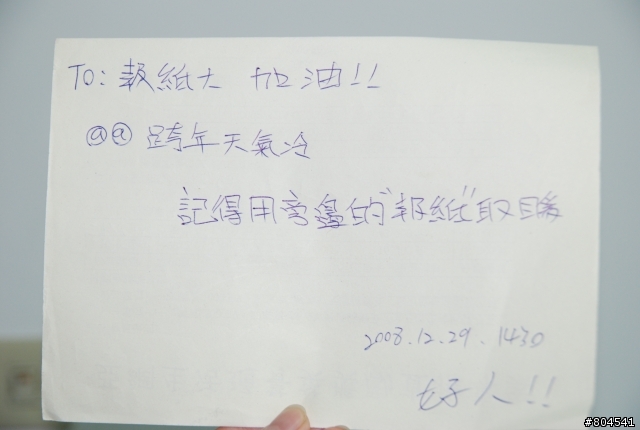 To: 報紙大 加油!!
@@ 跨年天氣冷
記得用旁邊的"報紙"取暖
2008.12.29. 1430
好人!!
#804541